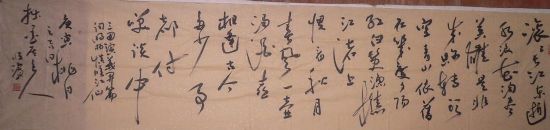 滚滚长江东逝
水浪花淘尽
英雄是非
成败转头
空青山依旧
在几度夕阳
红白发渔樵
江渚上
惯看秋月
春风一壶
浊酒喜
相逢古今
多少事
都付
笑谈中
三国演义开篇
词杨慎临江仙
庚寅桃月